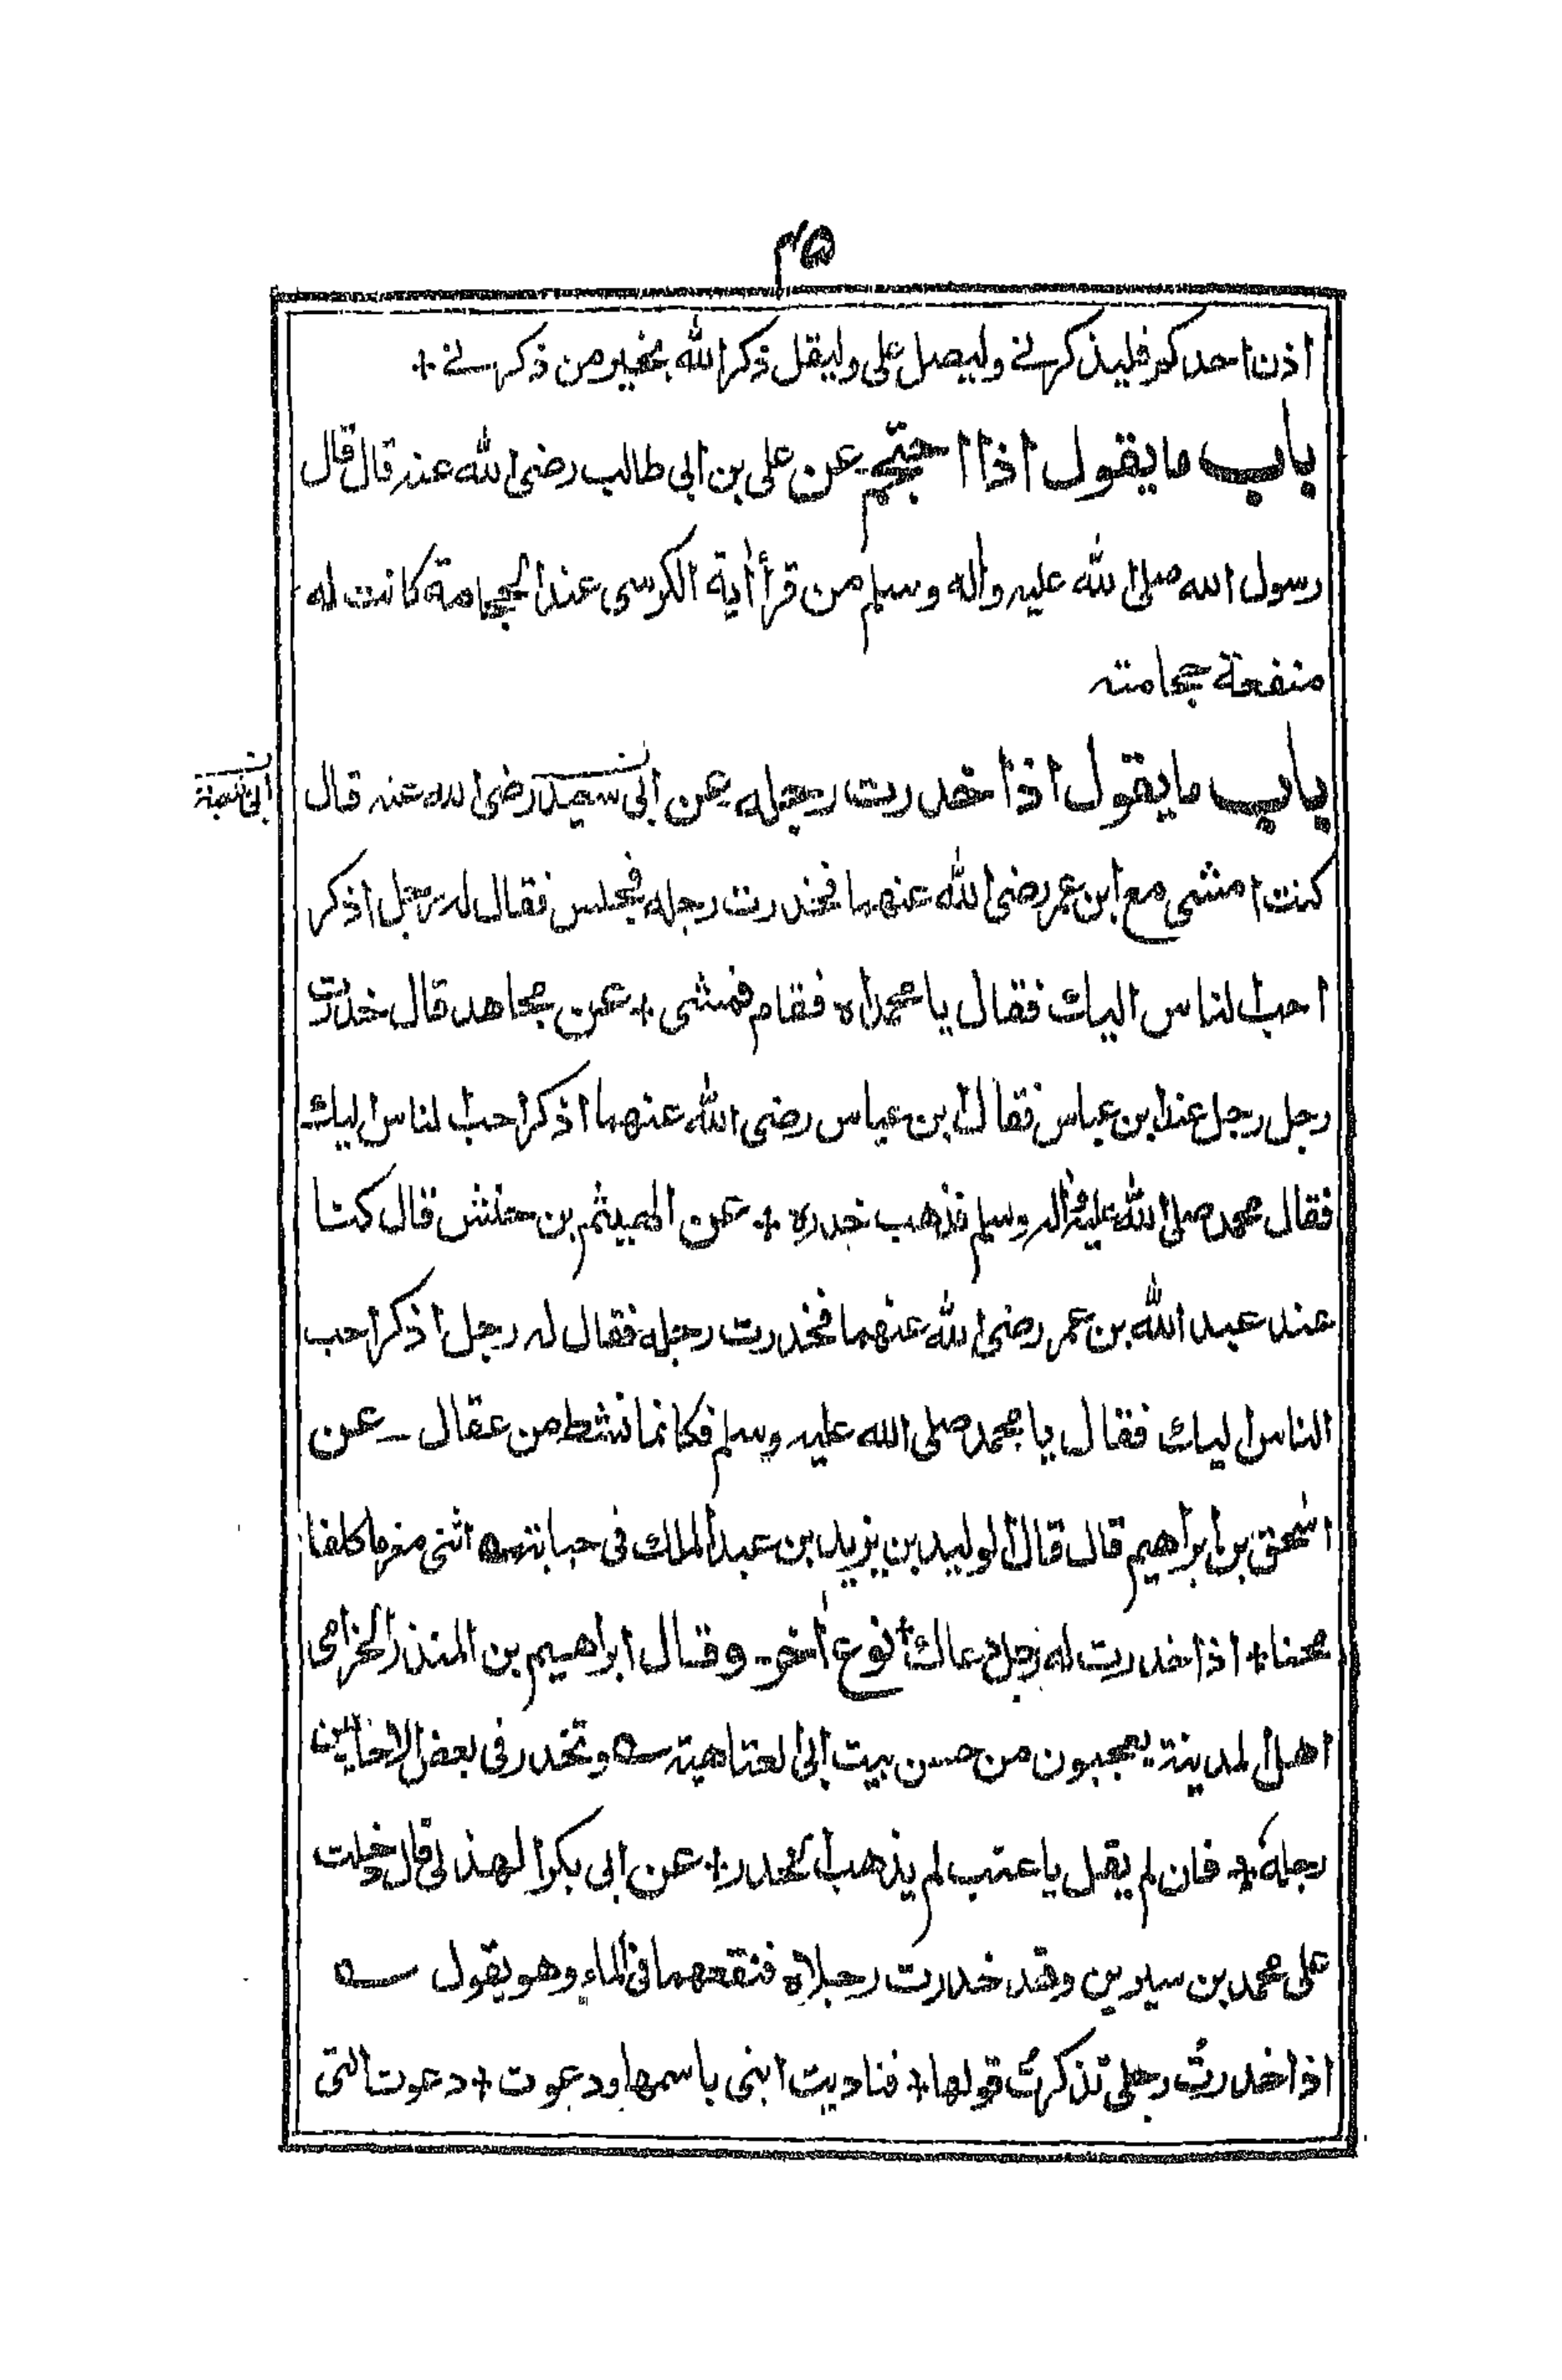 ۴۵
اذن احدكم فليذكرنے وليصل على وليقل ذكر الله بخير من ذكرنے +
باب ما يقول اذا احتجم عن على بن ابى طالب رضى الله عنه قال قال
رسول الله صلى الله عليه واله وسلم من قرأ اٰية الكرسى عند الحجامة كانت له
منفعة حجامته
باب ما يقول اذا خدرت رجله عن ابى سعيد رضى الله عنه قال
كنت امشى مع ابن عمر رضى الله عنهما فخدرت رجله فجلس فقال له رجل اذكر
احب الناس اليك فقال يا محمداه فقام فمشى + عن مجاهد قال خدرت
رجل رجل عند ابن عباس فقال ابن عباس رضى الله عنهما اذكر احب الناس اليك
فقال محمد صلى الله عليه واله وسلم فذهب خدره + عن الهيثم بن حنش قال كنا
عند عبد الله بن عمر رضى الله عنهما فخدرت رجله فقال له رجل اذكر احب
الناس اليك فقال يا محمد صلى الله عليه وسلم فكانما نشط من عقال ـ عن
اسحٰق بن ابراهيم قال قال الوليد بن يزيد بن عبد الملك فى حبابته اثنى مغرما كلفا
محنا + اذا خدرت له رجل دعاك + نوع اٰخر ـ وقال ابراهيم بن المنذر الحزامى
اهل المدينة يعجبون من حسن بيت ابى العتاهية وتخدر فى بعض الاحايين
رجله + فان لم يقل يا عتب لم يذهب الخدر + عن ابى بكر الهذلى قال دخلت
على محمد بن سيرين وقد خدرت رجلاه فنقعهما فى الماء وهو يقول
اذا خدرت رجلى تذكرت قولها + فناديت ابنى باسمها ودعوت + دعوت التى